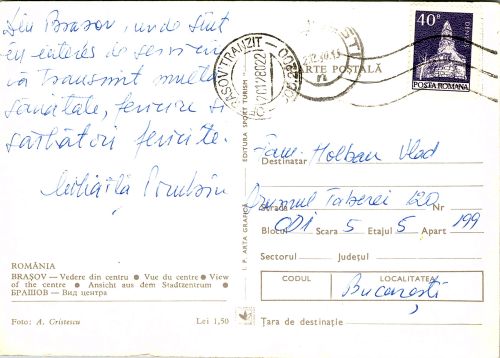 Din Brasov, unde sînt
în interes de serviciu
vă transmit multă
sănătate, fericire și
sărbători fericite.
ROMÂNIA
BRAȘOV — Vedere din centru ● Vue du centre ● View
of the centre ● Ansicht aus dem Stadtzentrum ●
БРАШОВ — Вид центра
Foto: A. Cristescu Lei 1,50
I. P. ARTA GRAFICĂ
EDITURA SPORT TURISM
BRASOV TRANZIT
CARTE POȘTALĂ
40B
DENSUȘ
POSTA ROMANA
Destinatar Fam. Holban Vlad
Strada Drumul Taberei 120 Nr
Blocul OD1 Scara 5 Etajul 5 Apart 199
Sectorul Județul
CODUL LOCALITATEA
București
Țara de destinație